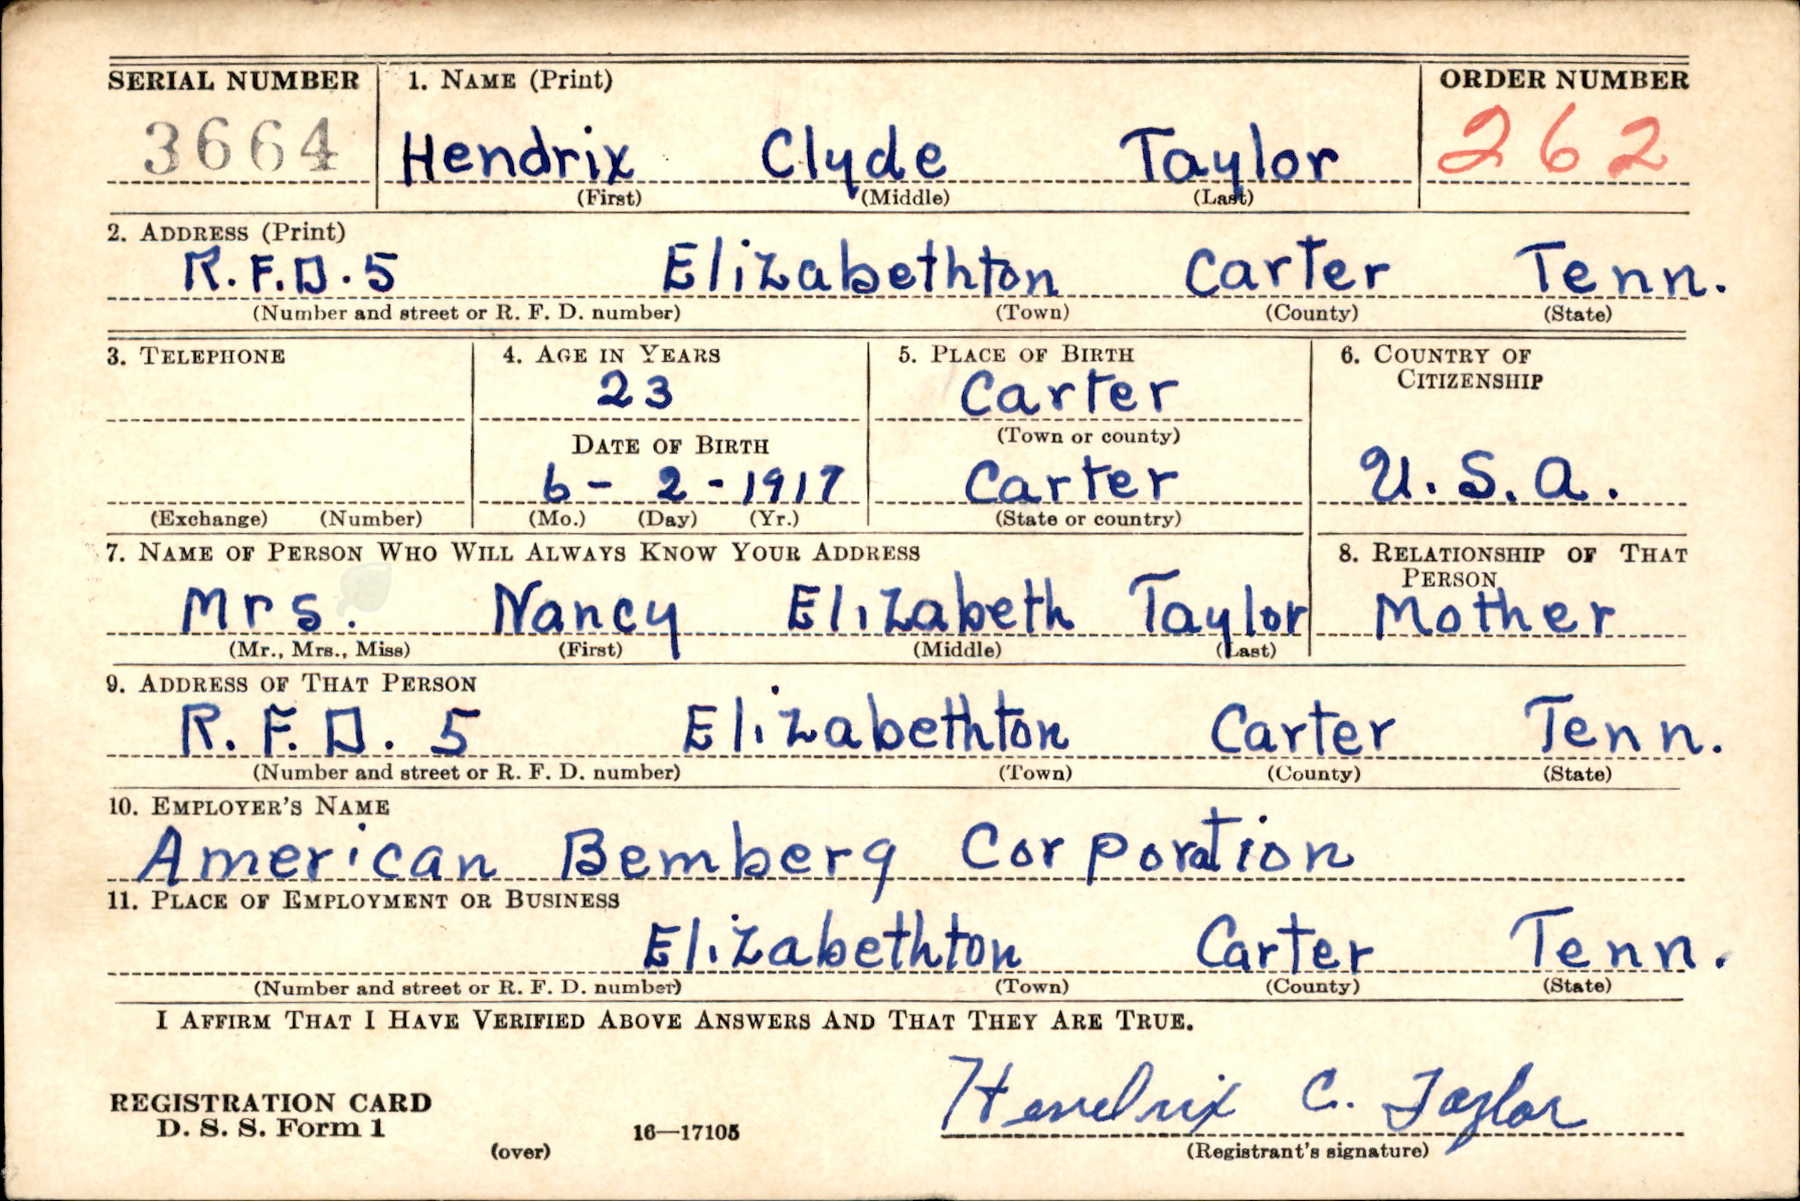 SERIAL NUMBER 1. NAME (Print) ORDER NUMBER
3664 Hendrix Clyde Taylor 262
(First) (Middle) (Last)
2. ADDRESS (Print)
R.F.D. 5 Elizabethton Carter Tenn.
(Number and street or R. F. D. number) (Town) (County) (State)
3. TELEPHONE 4. AGE IN YEARS 5. PLACE OF BIRTH 6. COUNTRY OF
CITIZENSHIP
23 Carter
(Town or county)
DATE OF BIRTH
6 - 2 - 1917 Carter U.S.A.
(Exchange) (Number) (Mo.) (Day) (Yr.) (State or country)
7. NAME OF PERSON WHO WILL ALWAYS KNOW YOUR ADDRESS 8. RELATIONSHIP OF THAT
PERSON
Mrs. Nancy Elizabeth Taylor Mother
(Mr., Mrs., Miss) (First) (Middle) (Last)
9. ADDRESS OF THAT PERSON
R.F.D. 5 Elizabethton Carter Tenn.
(Number and street or R. F. D. number) (Town) (County) (State)
10. EMPLOYER'S NAME
American Bemberg Corporation
11. PLACE OF EMPLOYMENT OR BUSINESS
Elizabethton Carter Tenn.
(Number and street or R. F. D. number) (Town) (County) (State)
I AFFIRM THAT I HAVE VERIFIED ABOVE ANSWERS AND THAT THEY ARE TRUE.
REGISTRATION CARD
D. S. S. Form 1 Hendrix C. Taylor
(over) 16—17105 (Registrant's signature)